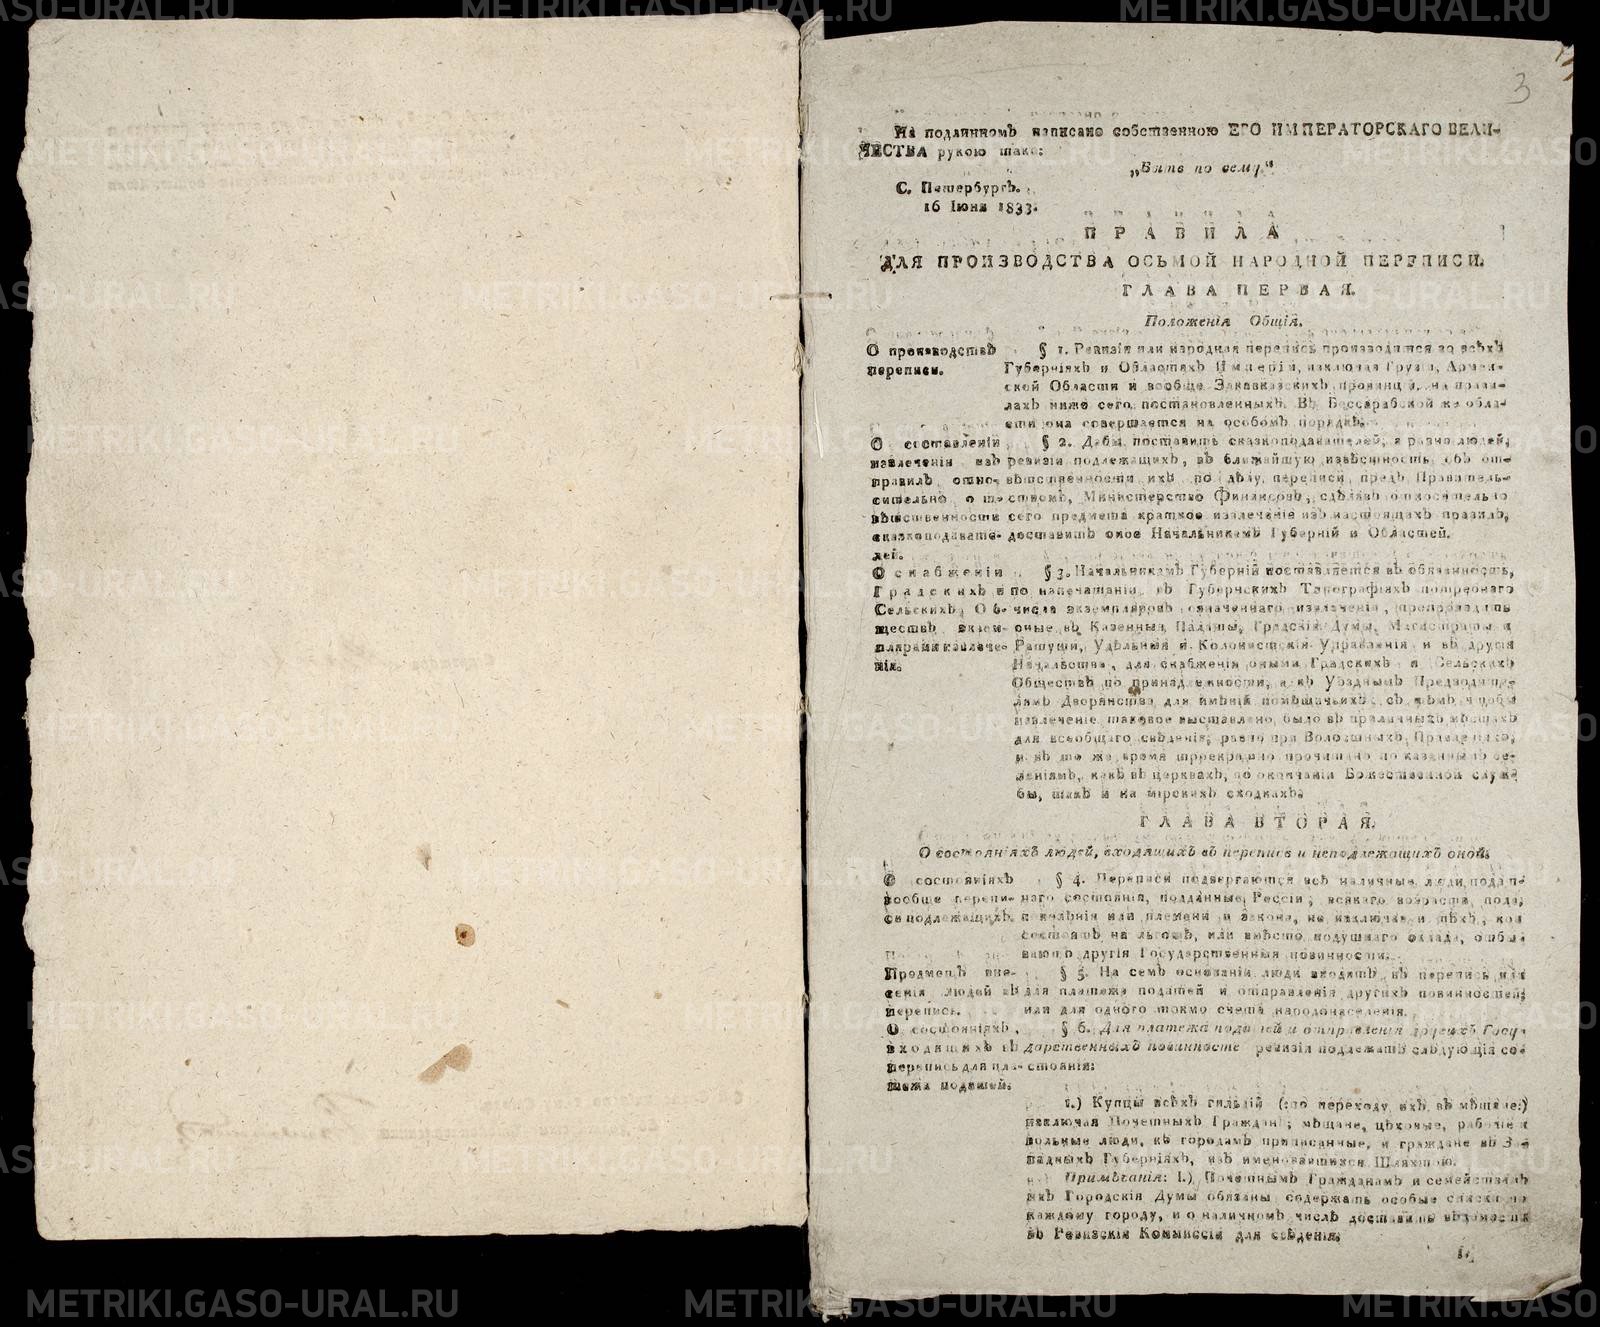 3
На подлинномъ написано собственною ЕГО ИМПЕРАТОРСКАГО ВЕЛИ-
ЧЕСТВА рукою тако:
„Быть по сему“
С. Петербургъ.
16 Іюня 1833.
ПРАВИЛА
ДЛЯ ПРОИЗВОДСТВА ОСЬМОЙ НАРОДНОЙ ПЕРЕПИСИ.
ГЛАВА ПЕРВАЯ.
Положенія Общія.
О производствѣ
переписи.
§ 1. Ревизія или народная перепись производится во всѣхъ
Губерніяхъ и Областяхъ Имперіи, изключая Грузіи, Армян-
ской Области и вообще Закавказскихъ провинцій, на прави-
лахъ ниже сего постановленныхъ. Въ Бессарабской же обла-
сти она совершается на особомъ порядкѣ.
О составленіи
извлеченія изъ
правилъ отно-
сительно от-
вѣтственности
сказкоподавате-
лей.
§ 2. Дабы поставить сказкоподавателей, а равно людей,
ревизіи подлежащихъ, въ ближайшую извѣстность объ от-
вѣтственности ихъ по дѣлу переписи предъ Правитель-
ствомъ, Министерство Финансовъ, сдѣлавъ относительно
сего предмета краткое извлеченіе изъ настоящихъ правилъ,
доставитъ оное Начальникамъ Губерній и Областей.
О снабженіи
Градскихъ и
Сельскихъ Об-
ществъ экзем-
плярами извлече-
нія.
§ 3. Начальникамъ Губерній поставляется въ обязанность,
по напечатаніи въ Губернскихъ Типографіяхъ потребнаго
числа экземпляровъ означеннаго извлеченія, препроводить
оные въ Казенныя Палаты, Градскія Думы, Магистраты и
Ратуши, Удѣльныя и Колонистскія Управленія и въ другія
Начальства, для снабженія оными Градскихъ и Сельскихъ
Обществъ по принадлежности, и къ Уѣзднымъ Предводите-
лямъ Дворянства для имѣній помѣщичьихъ съ тѣмъ, чтобы
извлеченіе таковое выставлено было въ приличныхъ мѣстахъ
для всеобщаго свѣденія; равно при Волостныхъ Правленіяхъ,
и въ то же время троекратно прочитано по казеннымъ се-
леніямъ, какъ въ церквахъ, по окончаніи Божественной служ-
бы, такъ и на мірскихъ сходкахъ.
ГЛАВА ВТОРАЯ.
О состояніяхъ людей, входящихъ въ перепись и неподлежащихъ оной.
О состояніяхъ
вообще перепи-
си подлежащихъ.
§ 4. Переписи подвергаются всѣ наличные люди подат-
наго состоянія, подданные Россіи, всякаго возраста, пола,
поколѣнія или племени и закона, не изключая и тѣхъ, кои
состоятъ на льготѣ, или вмѣсто подушнаго оклада, отбы-
ваютъ другія Государственныя повинности.
Предметъ вне-
сенія людей въ
перепись.
§ 5. На семъ основаніи люди входятъ въ перепись или
для платежа податей и отправленія другихъ повинностей,
или для одного токмо счета народонаселенія.
О состояніяхъ,
входящихъ въ
перепись для пла-
тежа податей.
§ 6. Для платежа податей и отправленія другихъ Госу-
дарственныхъ повинностей ревизіи подлежатъ слѣдующія со-
стоянія:
1.) Купцы всѣхъ гильдій (:по переходу ихъ въ мѣщане:)
изключая Почетныхъ Гражданъ; мѣщане, цѣховые, рабочіе и
вольные люди, къ городамъ приписанные, и граждане въ За-
падныхъ Губерніяхъ, изъ именовавшихся Шляхтою.
Примѣчанія: 1.) Почетнымъ Гражданамъ и семействамъ
ихъ Городскія Думы обязаны содержать особые списки по
каждому городу, и о наличномъ числѣ доставить вѣдомости
въ Ревизскія Коммиссіи для свѣденія.
1.
METRIKI.GASO-URAL.RU